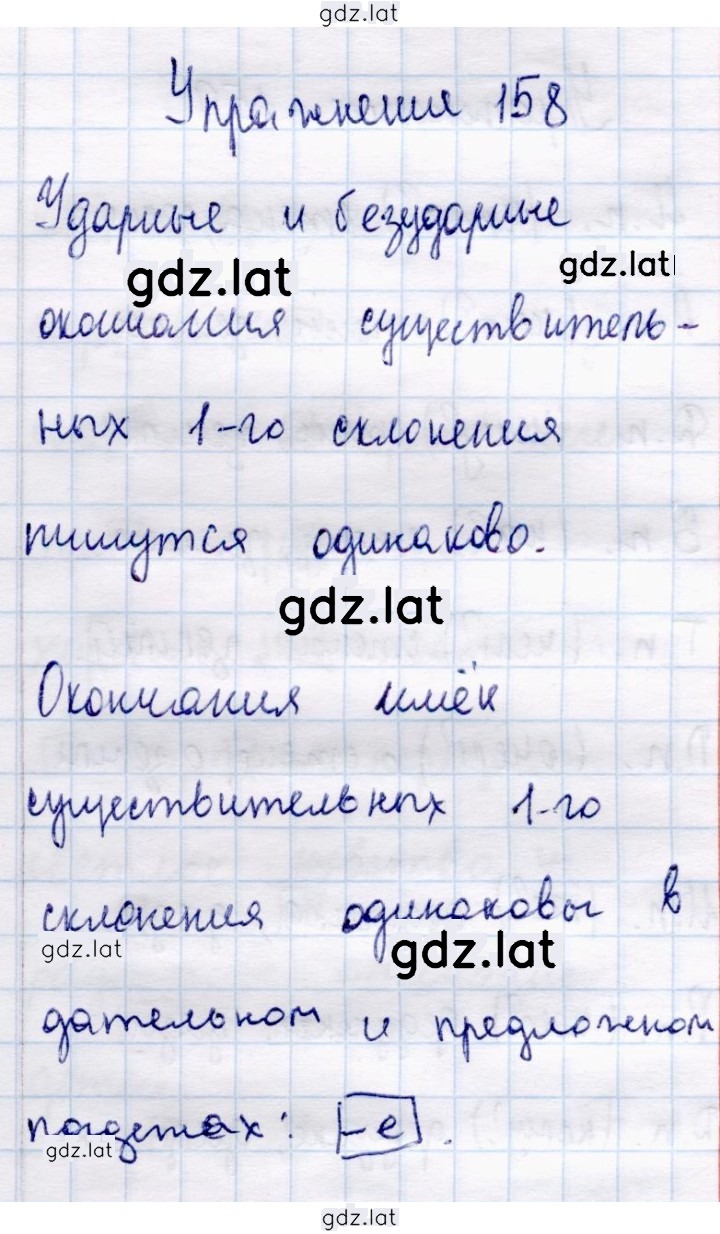 gdz.lat
Упражнение 158
Ударные и безударные
gdz.lat gdz.lat
окончания существитель-
ных 1-го склонения
пишутся одинаково.
gdz.lat
Окончания имён
существительных 1-го
склонения одинаковы в
gdz.lat gdz.lat
дательном и предложном
падежах: -е.
gdz.lat
gdz.lat